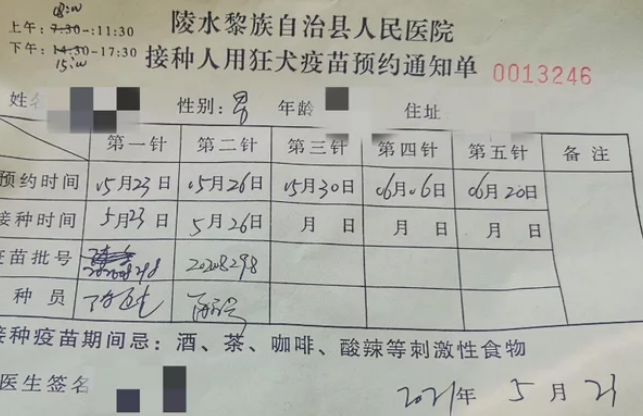 08:00
上午:7:30-:11:30
下午:14:30-17:30
15:00
陵水黎族自治县人民医院
接种人用狂犬疫苗预约通知单
0013246
姓 性别:男 年龄 住址
第一针 第二针 第三针 第四针 第五针 备注
预约时间 05月23日 05月26日 05月30日 06月06日 06月20日
接种时间 5月23日 5月26日 月日 月日 月日
疫苗批号 202008298 20208298
种员
接种疫苗期间忌:酒、茶、咖啡、酸辣等刺激性食物
医生签名 2021年5月23